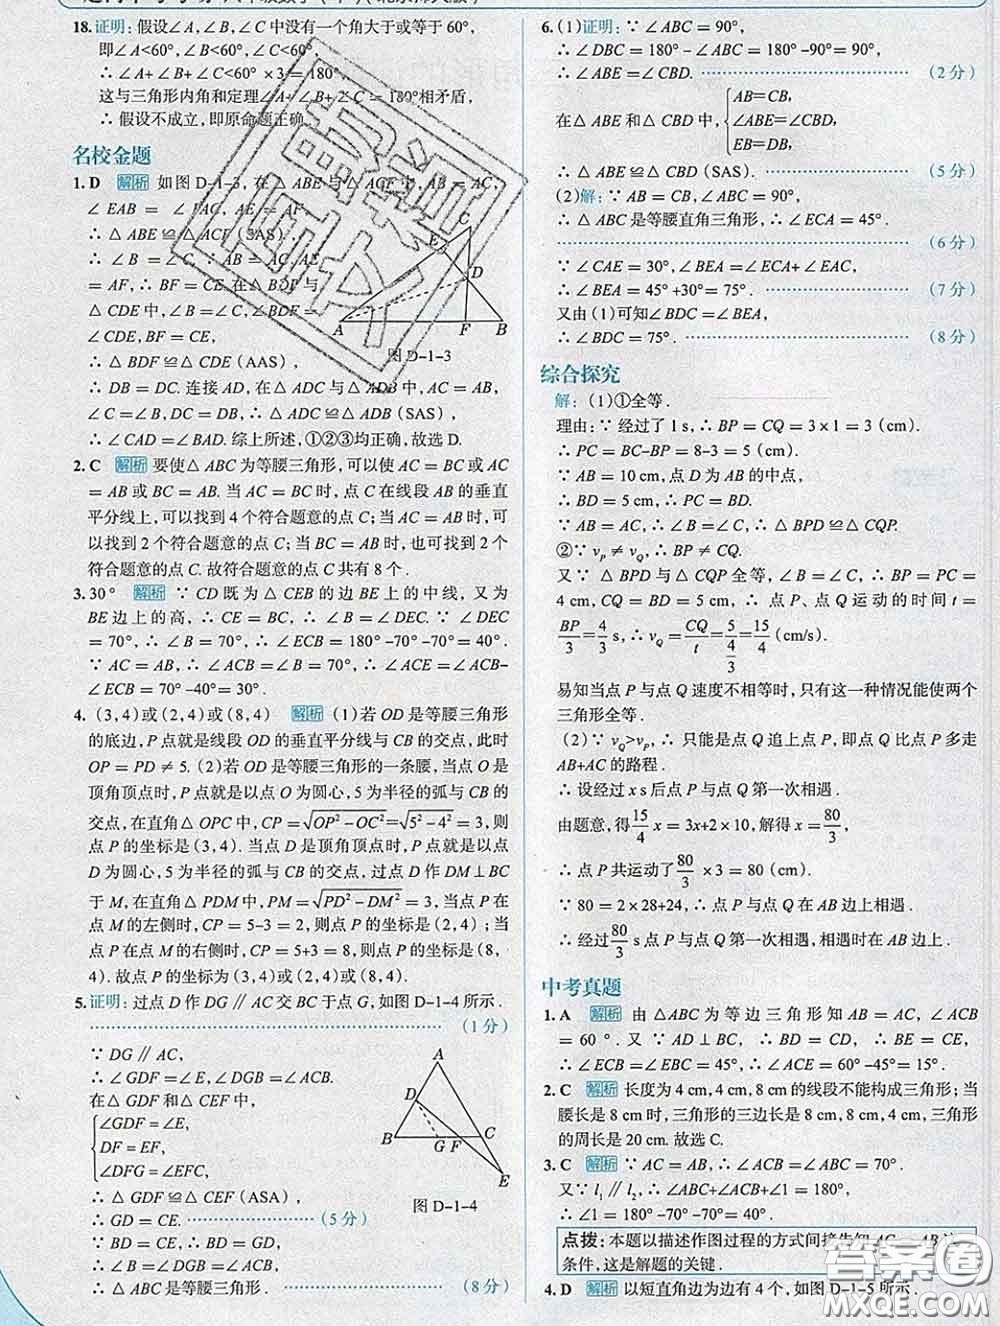 18. 证明: 假设∠A, ∠B, ∠C 中没有一个角大于或等于 60°,
即∠A<60°, ∠B<60°, ∠C<60°,
∴ ∠A+∠B+∠C<60°×3=180°,
这与三角形内角和定理∠A+∠B+∠C=180°相矛盾,
∴ 假设不成立, 即原命题正确.
名校金题
1. D 解析 如图 D-1-3, 在△ABE 与△ACF 中, AB=AC,
∠EAB=∠FAC, AE=AF,
∴ △ABE≌△ACF (SAS).
∴ ∠B=∠C. ∵ AB=AC, AE
=AF, ∴ BF=CE. 在△BDF 与
△CDE 中, ∠B=∠C, ∠BDF=
∠CDE, BF=CE,
∴ △BDF≌△CDE (AAS),
图 D-1-3
∴ DB=DC. 连接 AD, 在△ADC 与△ADB 中, AC=AB,
∠C=∠B, DC=DB, ∴ △ADC≌△ADB (SAS),
∴ ∠CAD=∠BAD. 综上所述, ①②③均正确, 故选 D.
2. C 解析 要使△ABC 为等腰三角形, 可以使 AC=BC 或 AC
=AB 或 BC=AB. 当 AC=BC 时, 点 C 在线段 AB 的垂直
平分线上, 可以找到 4 个符合题意的点 C; 当 AC=AB 时, 可
以找到 2 个符合题意的点 C; 当 BC=AB 时, 也可找到 2 个
符合题意的点 C. 故符合题意的点 C 共有 8 个.
3. 30° 解析 ∵ CD 既为△CEB 的边 BE 上的中线, 又为
BE 边上的高, ∴ CE=BC, ∴ ∠B=∠DEC. ∵ ∠DEC
=70°, ∴ ∠B=70°, ∴ ∠ECB=180°-70°-70°=40°.
∵ AC=AB, ∴ ∠ACB=∠B=70°, ∴ ∠ACE=∠ACB-
∠ECB=70°-40°=30°.
4. (3,4)或(2,4)或(8,4) 解析 (1)若 OD 是等腰三角形
的底边, P 点就是线段 OD 的垂直平分线与 CB 的交点, 此时
OP=PD≠5. (2)若 OD 是等腰三角形的一条腰, 当点 O 是
顶角顶点时, P 点就是以点 O 为圆心, 5 为半径的弧与 CB 的
交点, 在直角△OPC 中, CP=√(OP²-OC²)=√(5²-4²)=3, 则
点 P 的坐标是(3,4). 当点 D 是顶角顶点时, P 点就是以点
D 为圆心, 5 为半径的弧与 CB 的交点, 过点 D 作 DM⊥BC
于 M, 在直角△PDM 中, PM=√(PD²-DM²)=3, 当点 P 在
点 M 的左侧时, CP=5-3=2, 则点 P 的坐标为(2,4); 当
点 P 在点 M 的右侧时, CP=5+3=8, 则点 P 的坐标为(8,
4). 故点 P 的坐标为(3,4)或(2,4)或(8,4).
5. 证明: 过点 D 作 DG∥AC 交 BC 于点 G, 如图 D-1-4 所示.
(1分)
∵ DG∥AC,
∴ ∠GDF=∠E, ∠DGB=∠ACB.
在△GDF 和△CEF 中,
∠GDF=∠E,
DF=EF,
∠DFG=∠EFC,
∴ △GDF≌△CEF (ASA),
∴ GD=CE. (5分)
∵ BD=CE, ∴ BD=GD,
∴ ∠B=∠DGB=∠ACB,
∴ △ABC 是等腰三角形. (8分)
图 D-1-4
6. (1)证明: ∵ ∠ABC=90°,
∴ ∠DBC=180°-∠ABC=180°-90°=90°,
∴ ∠ABE=∠CBD. (2分)
在△ABE 和△CBD 中,
AB=CB,
∠ABE=∠CBD,
EB=DB,
∴ △ABE≌△CBD (SAS). (5分)
(2)解: ∵ AB=CB, ∠ABC=90°,
∴ △ABC 是等腰直角三角形, ∴ ∠ECA=45°.
(6分)
∵ ∠CAE=30°, ∠BEA=∠ECA+∠EAC,
∴ ∠BEA=45°+30°=75°. (7分)
又由(1)可知∠BDC=∠BEA,
∴ ∠BDC=75°. (8分)
综合探究
解: (1)①全等.
理由: ∵ 经过了 1 s, ∴ BP=CQ=3×1=3 (cm).
∴ PC=BC-BP=8-3=5 (cm).
∵ AB=10 cm, 点 D 为 AB 的中点,
∴ BD=5 cm, ∴ PC=BD.
∵ AB=AC, ∴ ∠B=∠C, ∴ △BPD≌△CQP.
②∵ vP≠vQ, ∴ BP≠CQ.
又∵ △BPD 与△CPQ 全等, ∠B=∠C, ∴ BP=PC=
4 cm, CQ=BD=5 cm, ∴ 点 P、点 Q 运动的时间 t=
BP/3=4/3 s, ∴ vQ=CQ/t=5/(4/3)=15/4 (cm/s).
易知当点 P 与点 Q 速度不相等时, 只有这一种情况能使两个
三角形全等.
(2)∵ vQ>vP, ∴ 只能是点 Q 追上点 P, 即点 Q 比点 P 多走
AB+AC 的路程.
∴ 设经过 x s 后点 P 与点 Q 第一次相遇.
由题意, 得 15/4 x=3x+2×10, 解得 x=80/3,
∴ 点 P 共运动了 80/3×3=80 (cm).
∵ 80=2×28+24, ∴ 点 P 与点 Q 在 AB 边上相遇.
∴ 经过 80/3 s 点 P 与点 Q 第一次相遇, 相遇时在 AB 边上.
中考真题
1. A 解析 由△ABC 为等边三角形知 AB=AC, ∠ACB
=60°. 又∵ AD⊥BC, ∴ BD=CD, ∴ BE=CE,
∴ ∠ECB=∠EBC=45°, ∴ ∠ACE=60°-45°=15°.
2. C 解析 长度为 4 cm, 4 cm, 8 cm 的线段不能构成三角形; 当
腰长是 8 cm 时, 三角形的三边长是 8 cm, 8 cm, 4 cm, 三角形
的周长是 20 cm. 故选 C.
3. C 解析 ∵ AC=AB, ∴ ∠ACB=∠ABC=70°.
又∵ l₁∥l₂, ∴ ∠ABC+∠ACB+∠1=180°,
∴ ∠1=180°-70°-70°=40°.
点拨: 本题以描述作图过程的方式间接告知 AC=AB
条件, 这是解题的关键.
4. D 解析 以短直角边为边有 4 个, 如图 D-1-5 所示.
答案圈
MXQE.COM